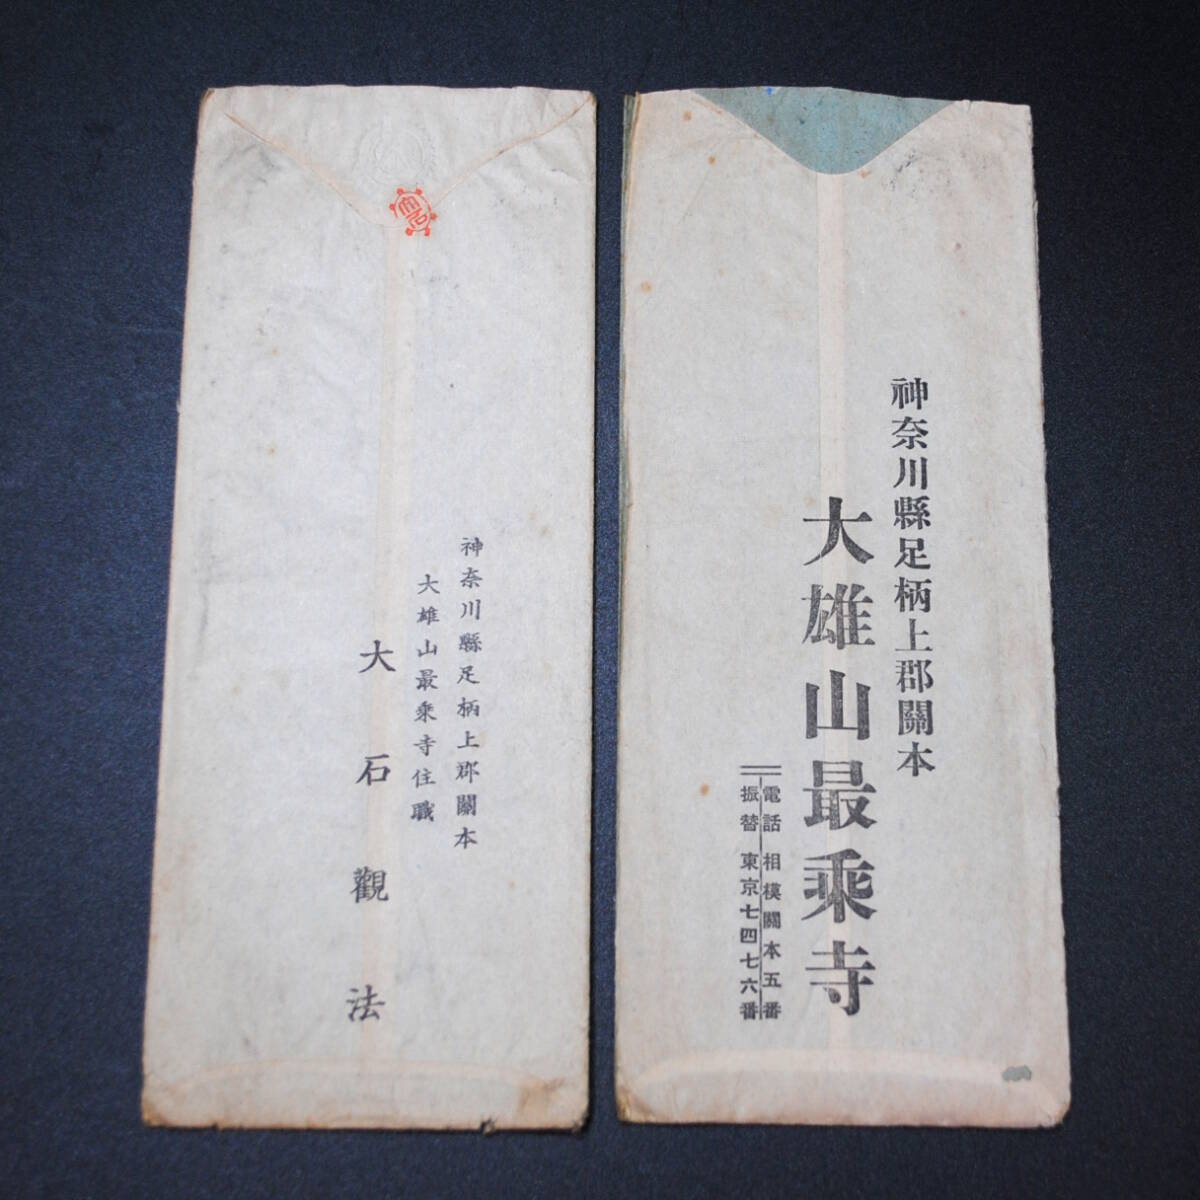 神奈川縣足柄上郡關本
大雄山最乘寺住職
大石觀法
神奈川縣足柄上郡關本
大雄山最乘寺
電話 相模關本五番
振替 東京七四七六番